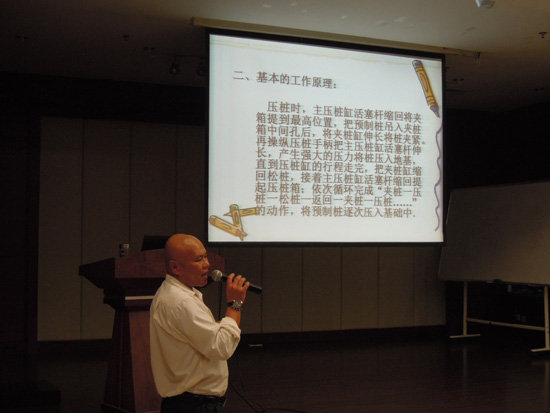 二、基本的工作原理：
压桩时，主压桩缸活塞杆缩回将夹
箱提到最高位置，把预制桩吊入夹桩
箱中间孔后，将夹桩缸伸长将桩夹紧、
再操纵压桩手柄把主压桩缸活塞杆伸
长，产生强大的压力将桩压入地基，
直到压桩缸的行程走完，把夹桩缸缩
回松桩，接着主压桩缸活塞杆缩回提
起压桩箱；依次循环完成“夹桩一压
桩一松桩一返回一夹桩一压桩……”
的动作，将预制桩逐次压入基础中.